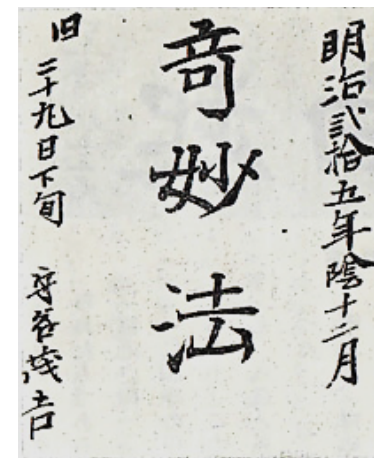 明治弐拾五年陰十二月
奇妙法
旧二十九日下旬 守谷浅吉